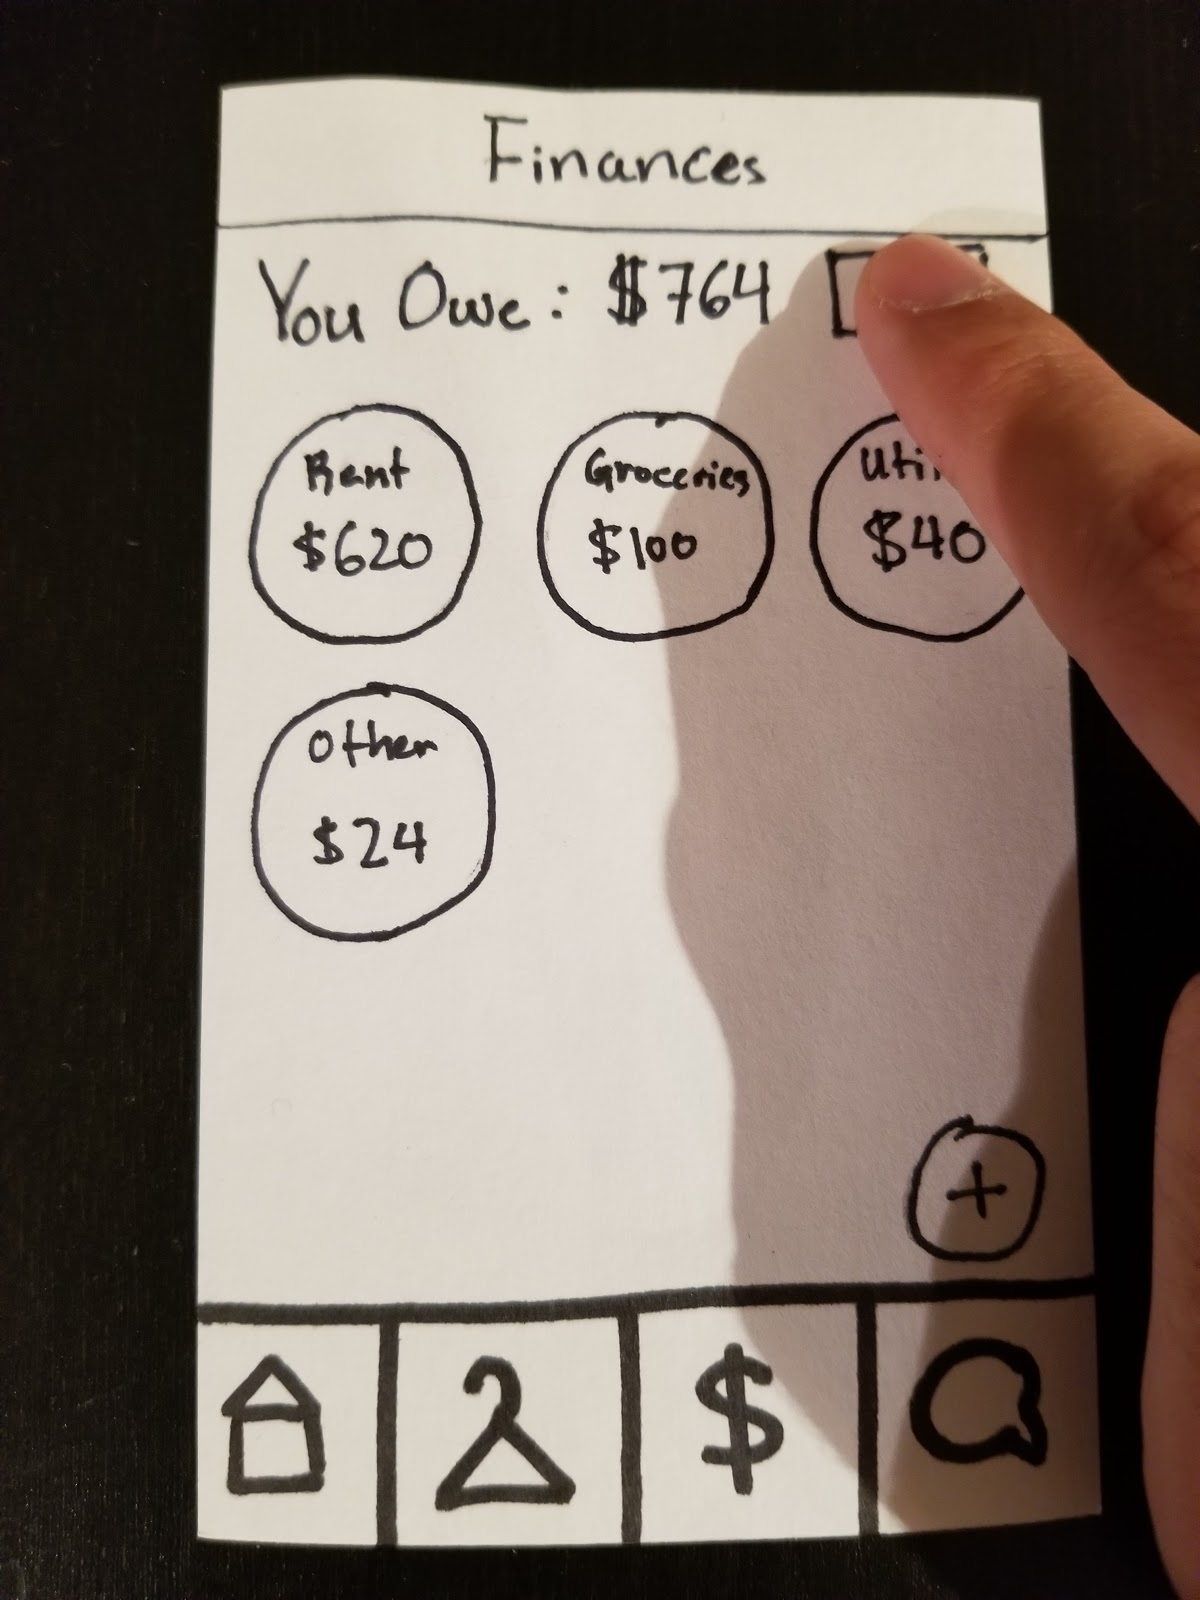 Finances
You Owe: $764
Rent Groceries
$620 $100 $40
Other
$24
+
$